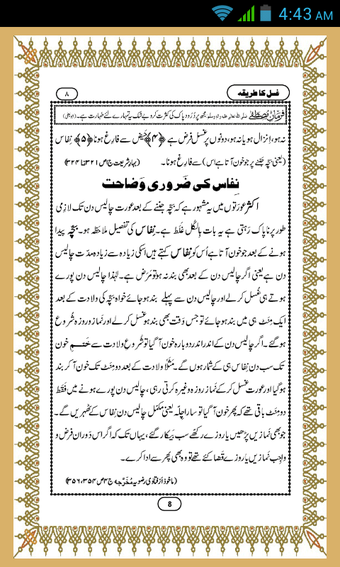 4:43 AM
غسل کا طریقہ
۸
فرمانِ مصطفٰے صلی اللہ تعالیٰ علیہ واٰلہٖ وسلم: مجھ پر دُرُود پاک کی کثرت کرو بے شک یہ تمہارے لئے طہارت ہے۔
نہ ہو، اِنزال ہو یا نہ ہو، دونوں پر غسل فرض ہے ﴿۴﴾ حیض سے فارغ ہونا ﴿۵﴾ نِفاس
(یعنی بچّہ جننے پر جو خون آتا ہے اس) سے فارغ ہونا۔ (بہارِ شریعت ج۱ ص۳۲۱ تا ۳۲۴)
نِفاس کی ضَروری وَضاحت
اکثر عورَتوں میں یہ مشہور ہے کہ بچّہ جننے کے بعد عورت چالیس دن تک لازِمی
طور پر ناپاک رَہتی ہے یہ بات بالکل غَلَط ہے۔ نِفاس کی تفصیل مُلاحَظہ ہو۔ بچّہ پیدا
ہونے کے بعد جو خون آتا ہے اُس کو نِفاس کہتے ہیں اسکی زیادہ سے زیادہ مدّت چالیس
دن ہے یعنی اگر چالیس دن کے بعد بھی بند نہ ہو تو مَرَض ہے۔ لہٰذا چالیس دن پورے
ہوتے ہی غُسل کر لے اور چالیس دن سے پہلے بند ہو جائے خواہ بچّہ کی ولادت کے بعد
ایک مِنَٹ ہی میں بند ہو جائے تو جس وَقت بھی بند ہو غسل کر لے اور نَماز و روزہ شُروع
ہو گئے۔ اگر چالیس دن کے اندر اندر دوبارہ خون آ گیا تو شُروعِ ولادت سے ختمِ خون
تک سب دن نِفاس ہی کے شمار ہوں گے۔ مَثَلًا ولادت کے بعد دو مِنَٹ تک خون آ کر بند
ہو گیا اور عورت غسل کر کے نَماز روزہ وغیرہ کرتی رہی، چالیس دن پورے ہونے میں فَقَط
دو مِنَٹ باقی تھے کہ پھر خون آ گیا تو سارا چِلّہ یعنی مکمَّل چالیس دن نِفاس کے ٹھہریں گے۔
جو بھی نَمازیں پڑھیں یا روزے رکھے سب بیکار گئے، یہاں تک کہ اگر اس دَوران فرض و
واجِب نَمازیں یا روزے قضا کئے تھے تو وہ بھی پھر سے ادا کرے۔
(ماخوذ از فتاوٰی رضویہ مُخَرَّجہ ج۴ ص۳۵۴، ۳۵۶)
8